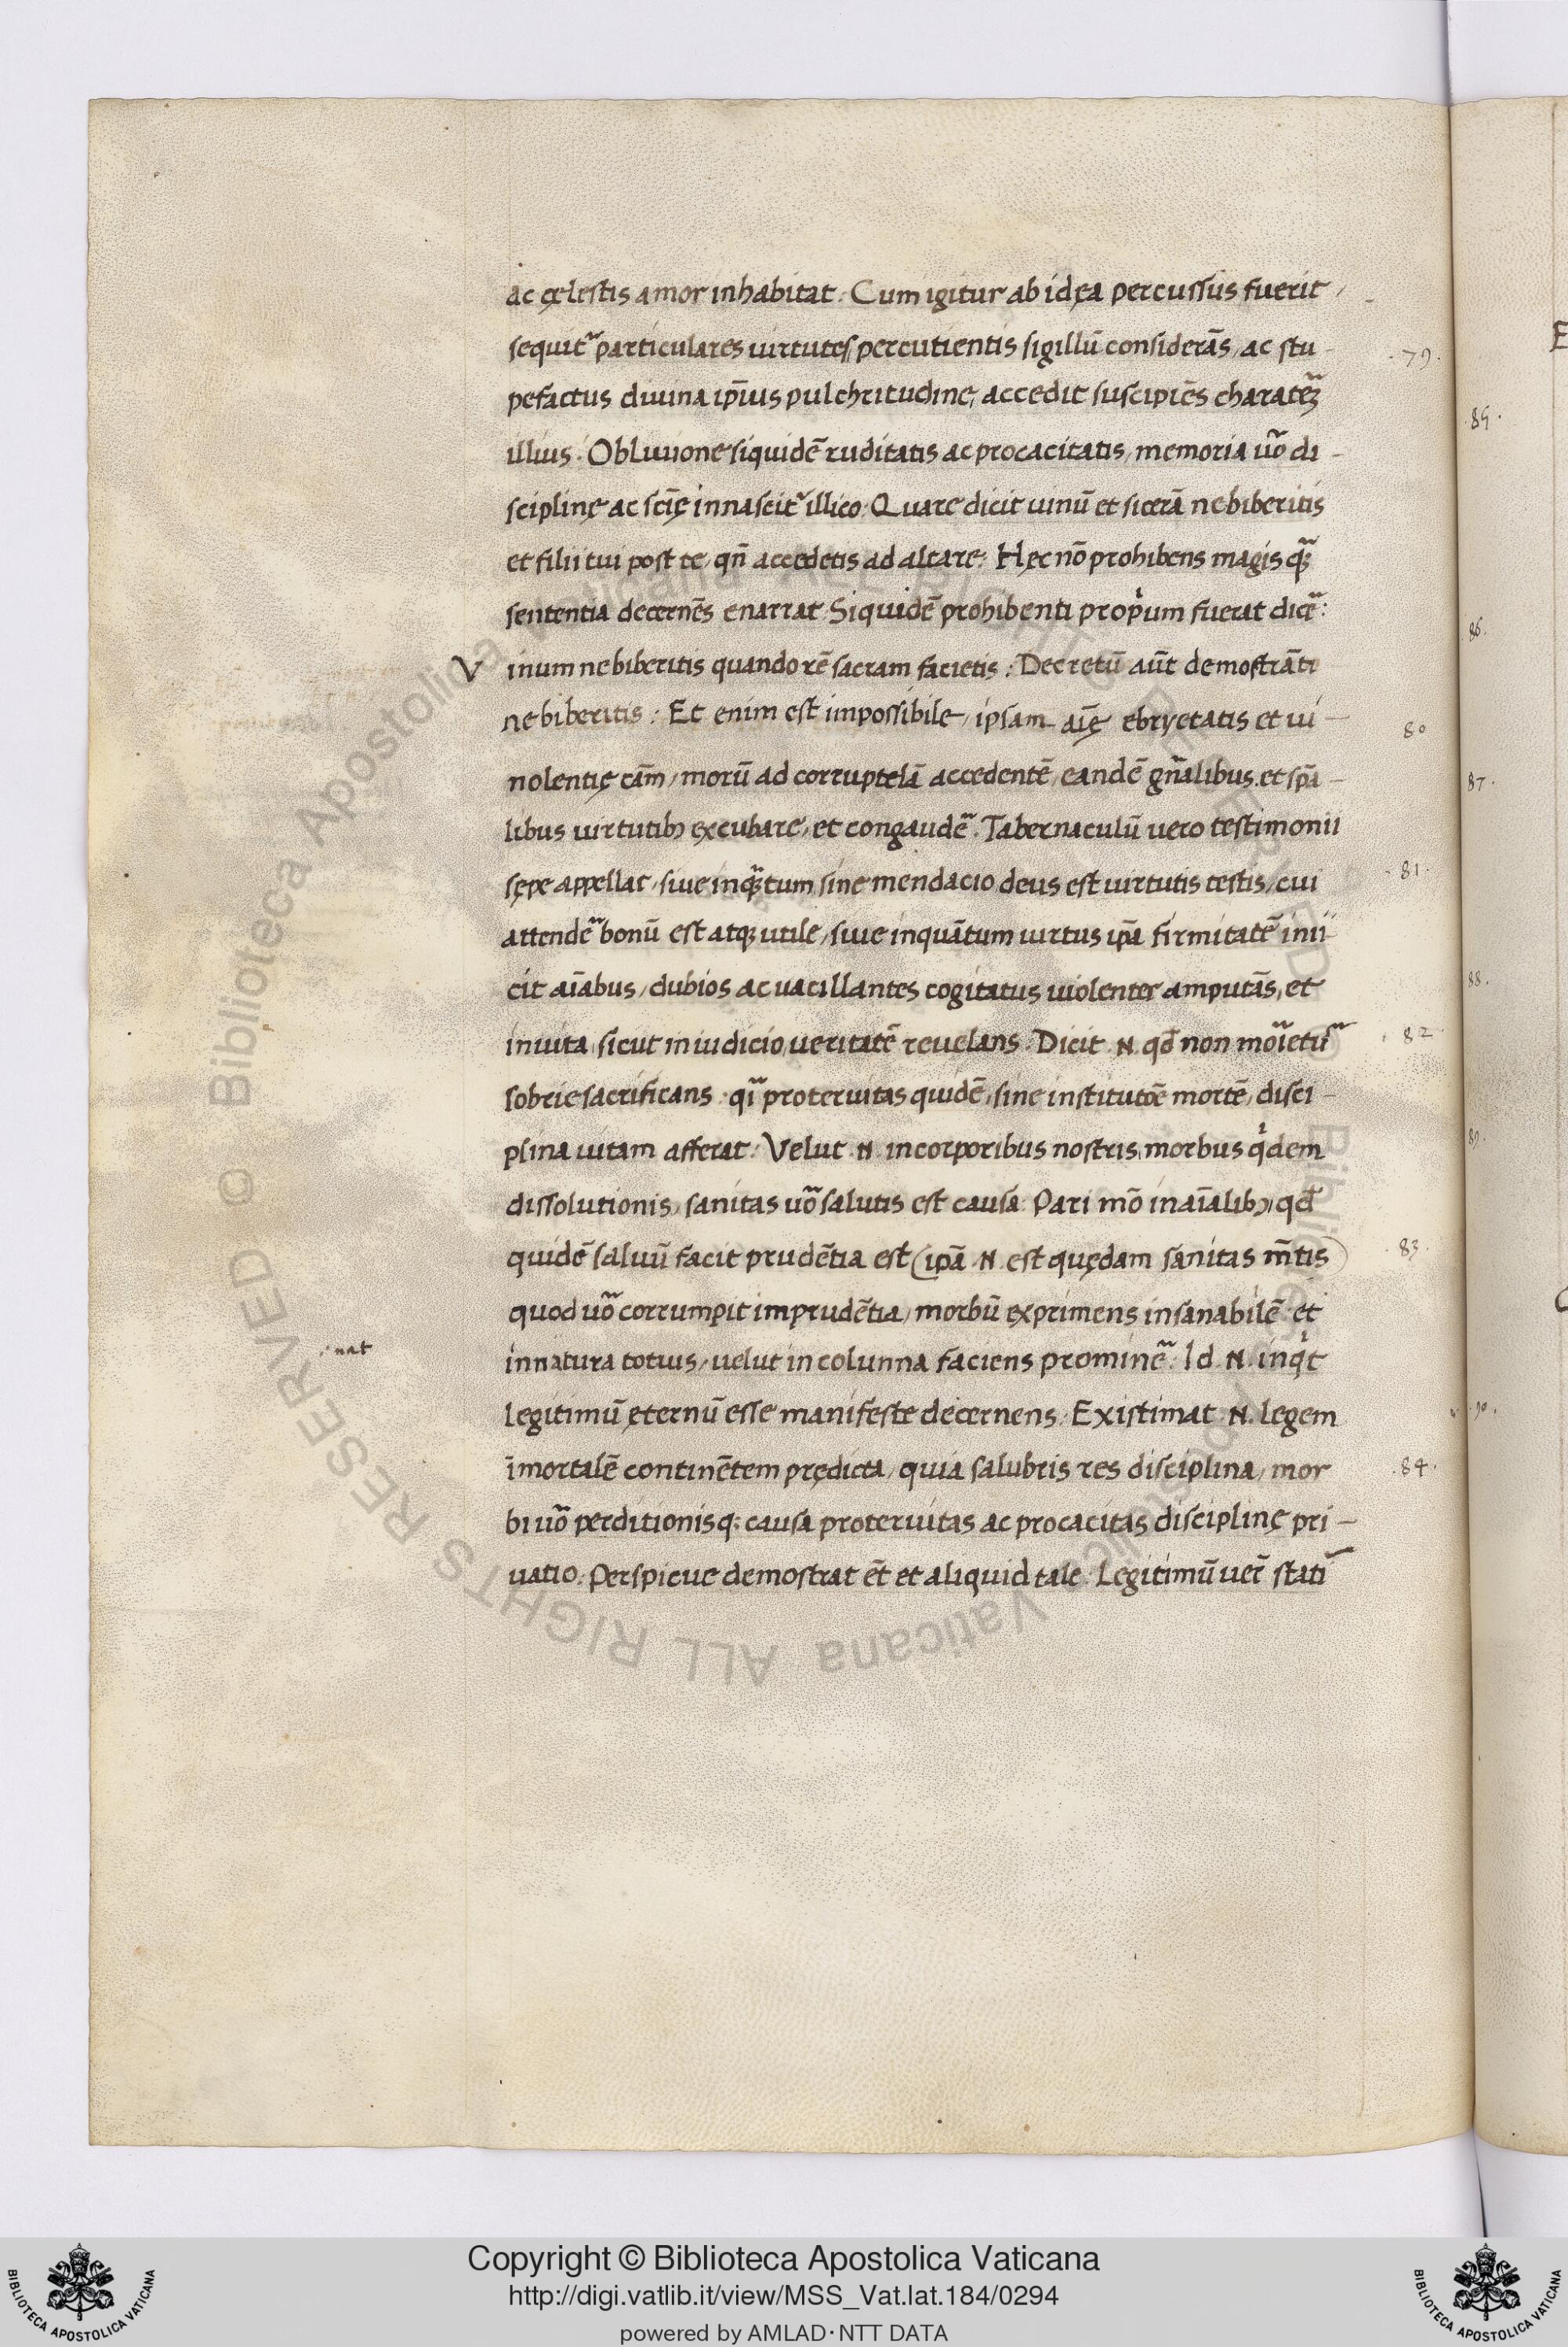 ac cęlestis amor inhabitat. Cum igitur ab idęa percussus fuerit /
sequit᷑ particulares uirtutes percutientis sigillū considerās, ac stu - ·79·
pefactus diuina ip̄ius pulchritudine, accedit suscipiēs charateꝝ
illius. Obliuione siquidē ruditatis ac procacitatis, memoria uo᷑ di -
sciplinę ac scię̄ innascit᷑ illico. Quare dicit uinū et sicerā ne biberitis
et filii tui post te, qn̄ accedetis ad altare. Hęc nō prohibens magis qᷓ
sententia decernēs enarrat. Siquidē prohibenti prop̍um fuerat dice᷑:
V inum ne biberitis quando rē sacram facietis. Decretū aūt demostrāti
ne biberitis. Et enim est impossibile, ipsam aīę ebryetatis et ui - 80
nolentię cām, morū ad corruptelā accedentē, eandē gn̄alibus et spā -
libus uirtutibꝫ excubare, et congaude᷑. Tabernaculū uero testimonii
sępe appellat, siue inqᷓtum sine mendacio deus est uirtutis testis, cui ·81·
attende᷑ bonū est atqꝫ utile, siue inquātum uirtus ip̄a firmitatē inii
cit aīabus, dubios ac uacillantes cogitatus uiolenter amputās, et
inuita, sicut in iudicio, ueritatē reuelans. Dicit .N. qd̄ non mo᷑iet᷑ ·82·
sobrie sacrificans. qi᷑ proteruitas quidē, sine institutōe mortē, disci -
plina uitam afferat. Velut .N. in corporibus nostris, morbus q̍dem
dissolutionis, sanitas uo᷑ salutis est causa. Pari mō in aīalibꝫ, qd̄
quidē saluū facit prudētia est (ip̄a .N. est quędam sanitas m̄tis) ·83·
quod uo᷑ corrumpit imprudētia, morbū exprimens insanabilē et
in natura totius, uelut in colunna faciens promine᷑. Id .N. inq̍t
nat
legitimū ęternū esse manifeste decernens. Existimat .N. legem
īmortalē continētem prędicta, quia salubris res disciplina, mor ·84·
bi uo᷑ perditionisq; causa proteruitas ac procacitas disciplinę pri -
uatio. Perspicue demostrat ēt et aliquid tale. Legitimū uer̄ stati᷑
·85·
86·
87·
88·
89·
·90·
© Biblioteca Apostolica Vaticana ALL RIGHTS RESERVED
Copyright © Biblioteca Apostolica Vaticana
http://digi.vatlib.it/view/MSS_Vat.lat.184/0294
powered by AMLAD·NTT DATA
BIBLIOTECA APOSTOLICA VATICANA
BIBLIOTECA APOSTOLICA VATICANA